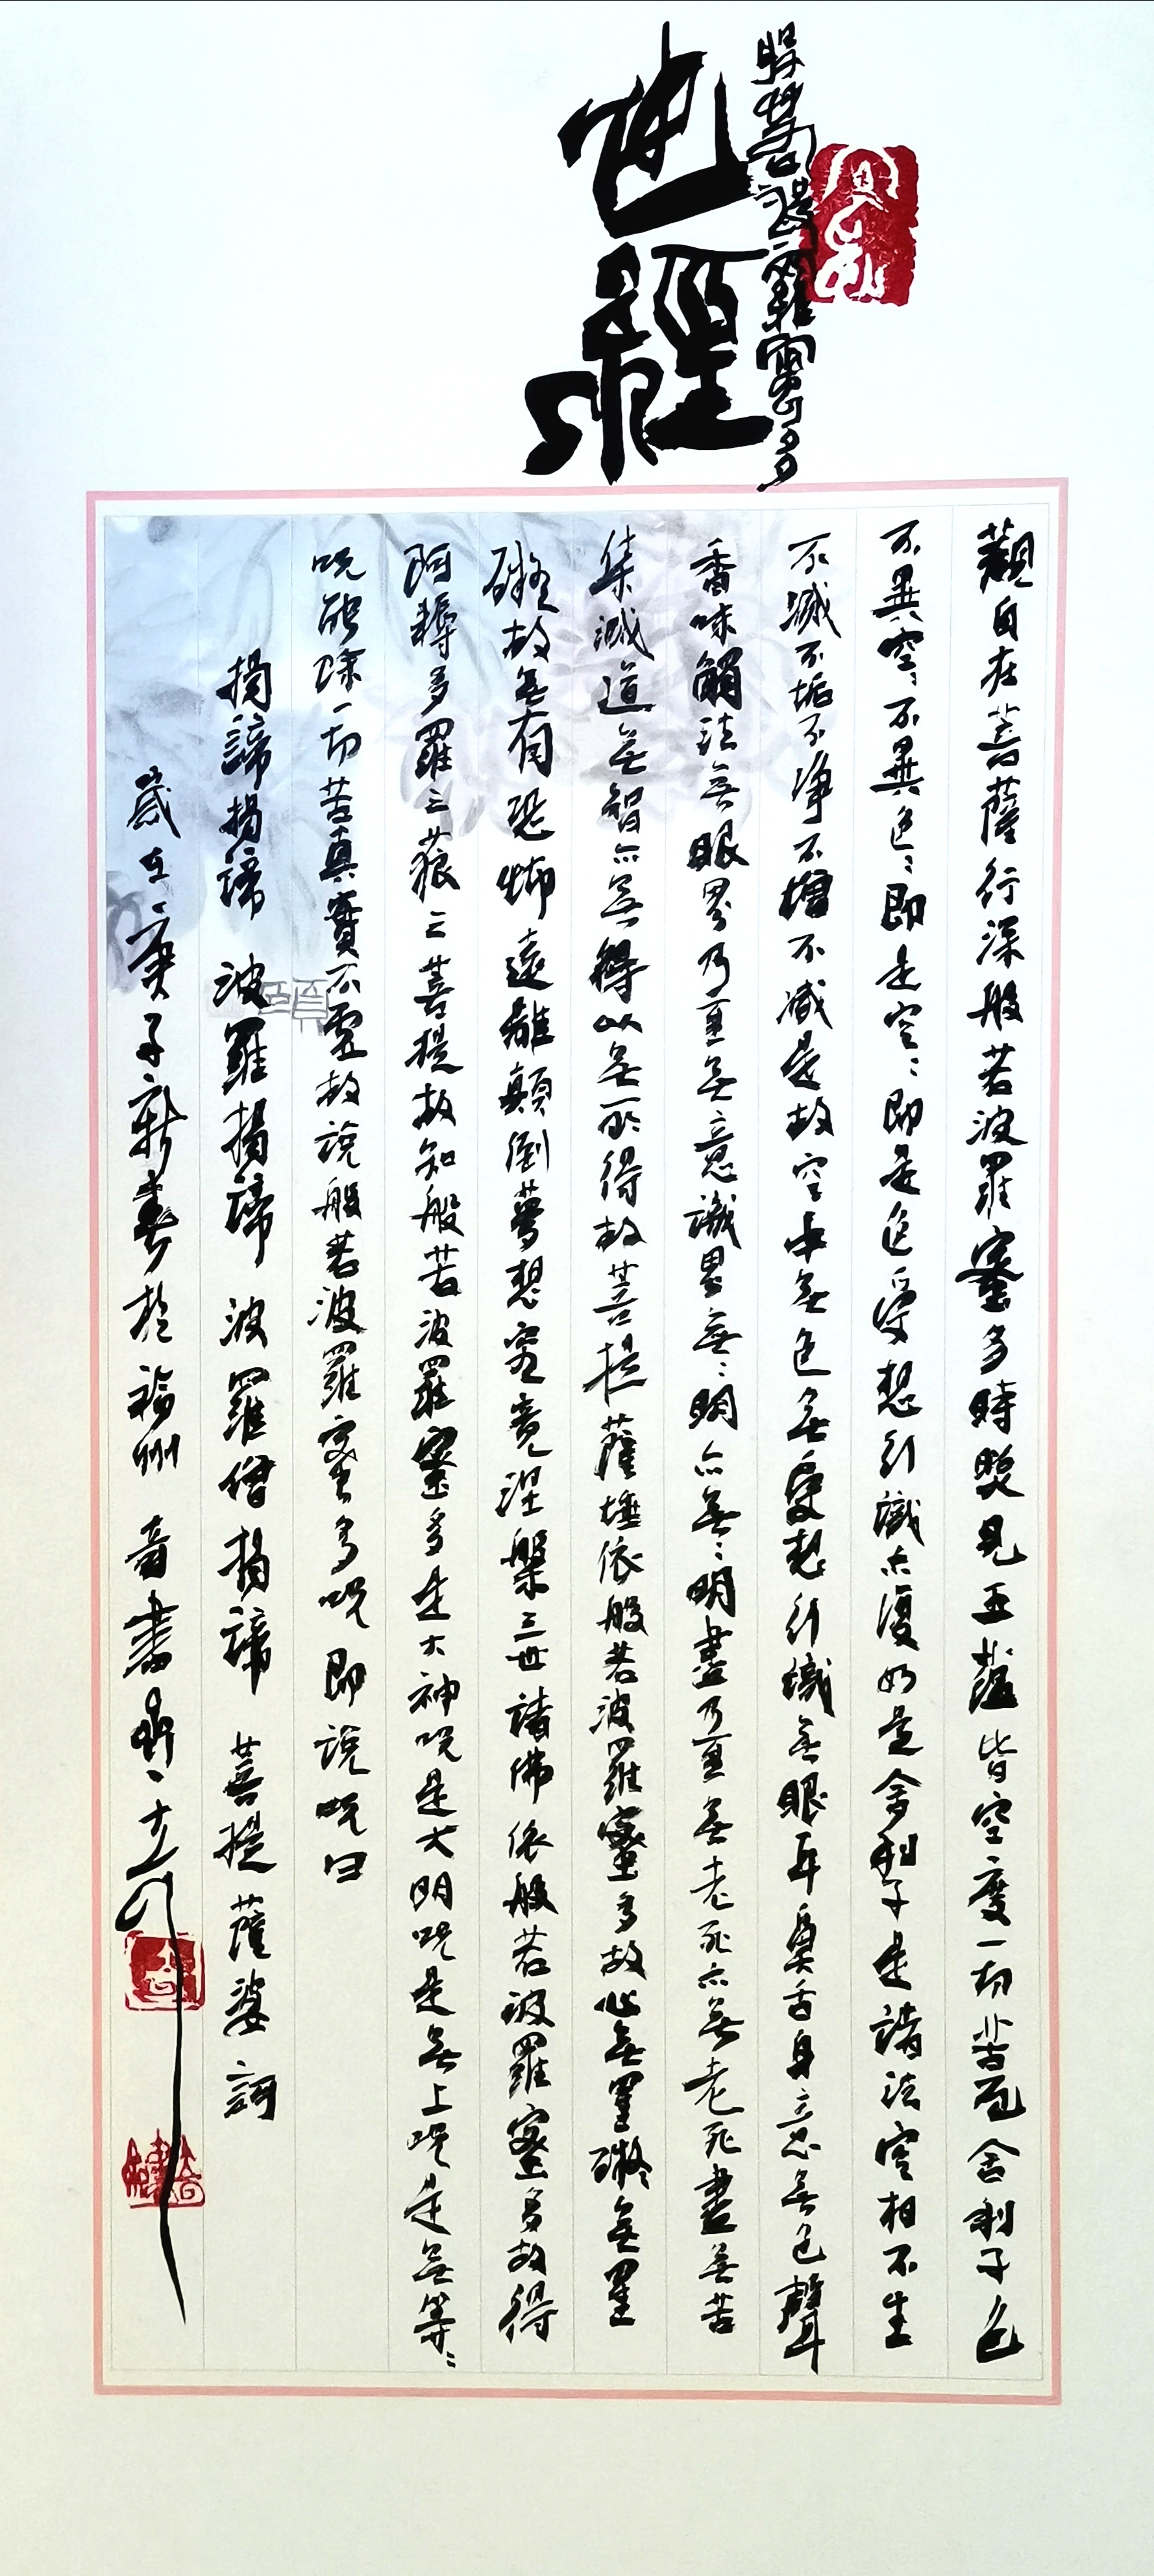 般若波羅蜜多
心經
觀自在菩薩行深般若波羅蜜多時照見五蘊皆空度一切苦厄舍利子色
不異空〻不異色〻即是空〻即是色受想行識亦復如是舍利子是諸法空相不生
不滅不垢不淨不增不減是故空中無色無受想行識無眼耳鼻舌身意無色聲
香味觸法無眼界乃至無意識界無〻明亦無〻明盡乃至無老死亦無老死盡無苦
集滅道無智亦無得以無所得故菩提薩埵依般若波羅蜜多故心無罣礙無罣
礙故無有恐怖遠離顛倒夢想究竟涅槃三世諸佛依般若波羅蜜多故得
阿耨多羅三藐三菩提故知般若波羅蜜多是大神咒是大明咒是無上咒是無等〻
咒能除一切苦真實不虛故說般若波羅蜜多咒 即說咒曰
揭諦揭諦 波羅揭諦 波羅僧揭諦 菩提薩婆訶
歲在庚子新春於福州